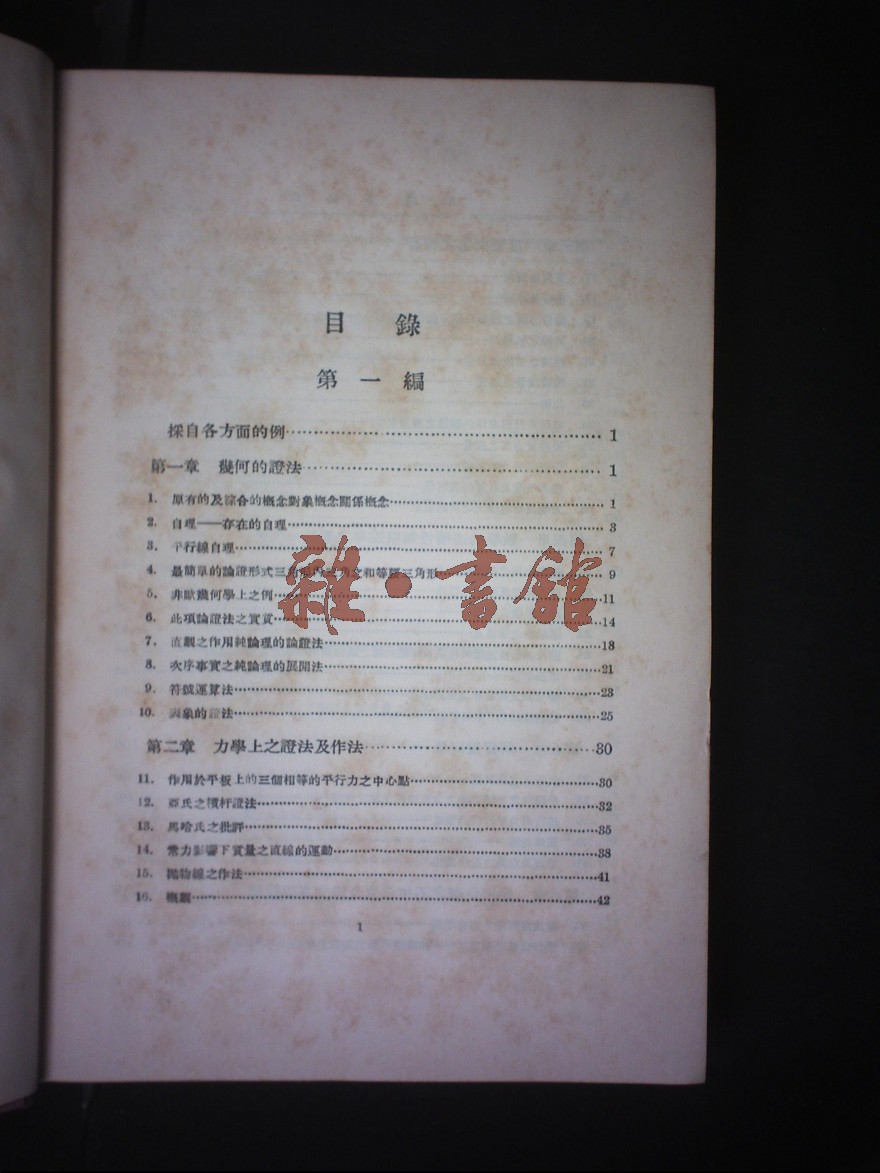 目 錄
第 一 編
採自各方面的例 1
第一章 幾何的證法 1
1. 原有的及綜合的概念對象概念關係概念 1
2. 自理——存在的自理 3
3. 平行線自理 7
4. 最簡單的論證形式三角形內三角之和等腰三角形 9
5. 非歐幾何學上之例 11
6. 此項論證法之實質 14
7. 直觀之作用純論理的論證法 18
8. 次序事實之純論理的展開法 21
9. 符號運算法 23
10. 表象的證法 25
第二章 力學上之證法及作法 30
11. 作用於平板上的三個相等的平行力之中心點 30
12. 亞氏之槓杆證法 32
13. 馬哈氏之批評 35
14. 常力影響下質量之直線的運動 38
15. 拋物線之作法 41
16. 概觀 42
1
雜·書館